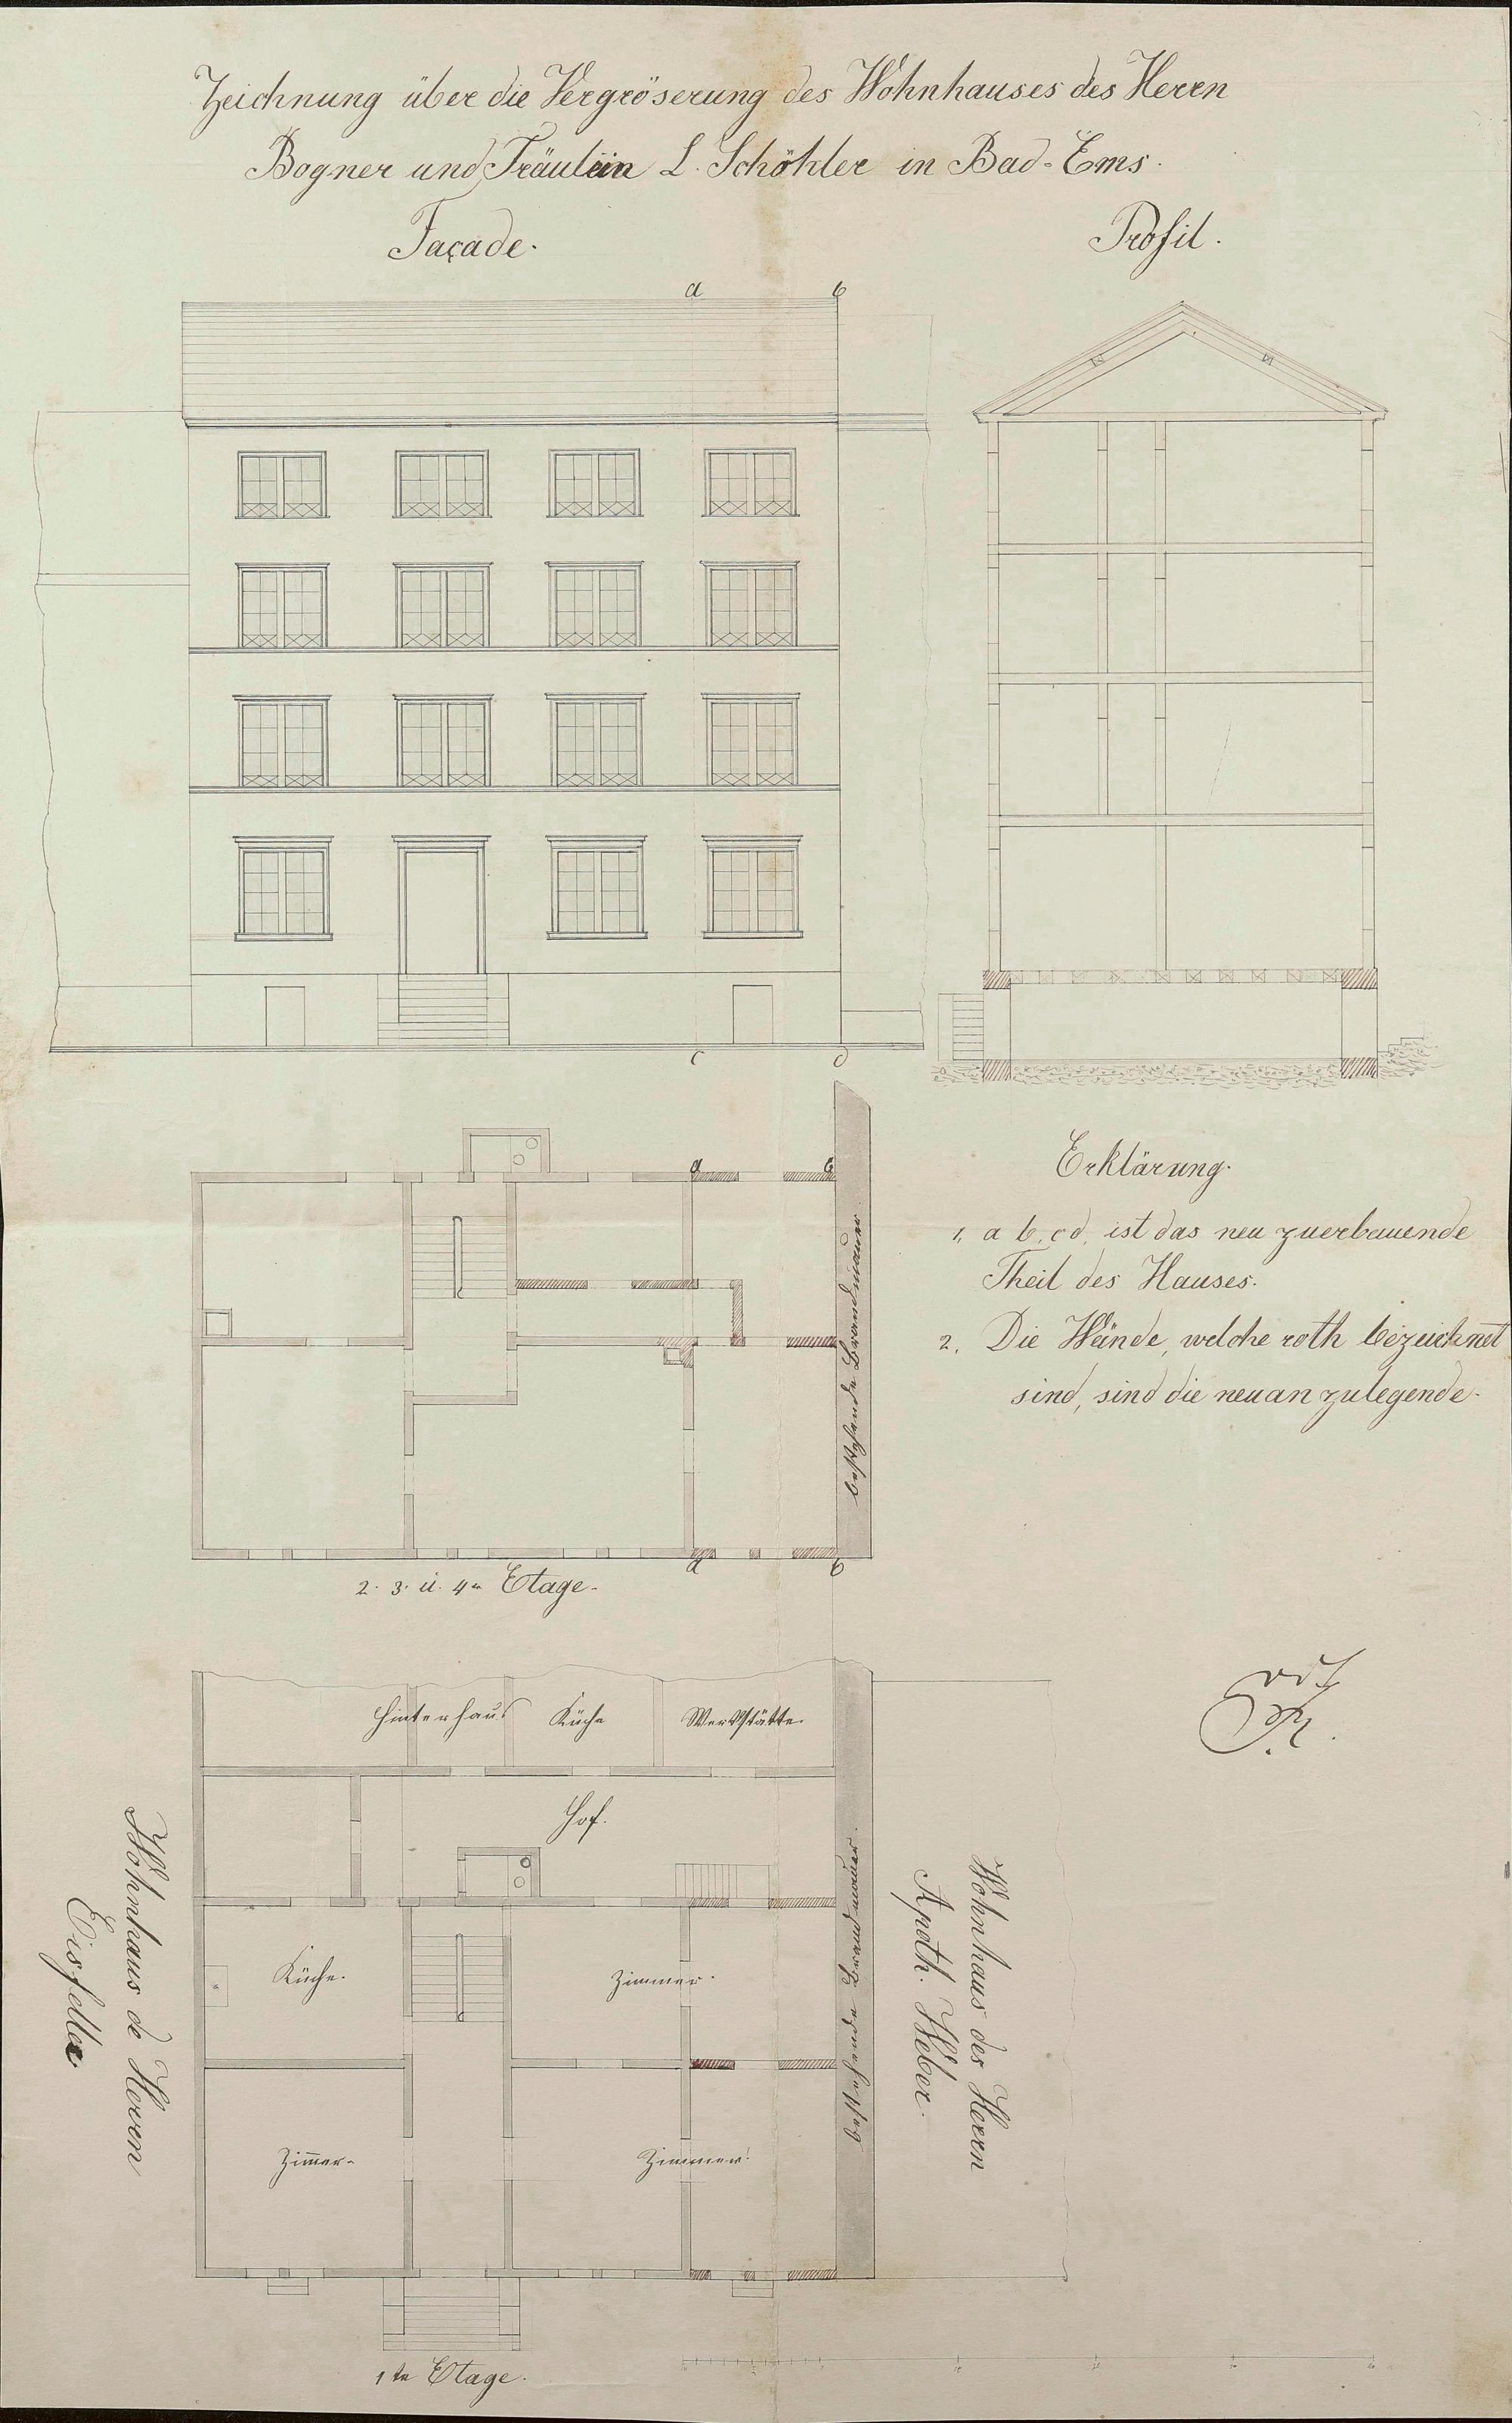 Zeichnung über die Vergröserung des Wohnhauses des Herrn
Bogner und Fräulein L. Schöhler in Bad-Ems.
Façade.
Profil.
a b
c d
Erklärung.
1, a b, c d, ist das neu zuerbauende
Theil des Hauses.
2, Die Wände, welche roth bezeichnet
sind, sind die neuanzulegende.
a b
bestehende Brandmauer
a b
2. 3. u. 4te Etage.
Hinterhaus Küche Werkstätte.
Hof.
Küche.
Zimmer.
Zimmer.
Zimmer.
bestehende Brandmauer.
Wohnhaus de Herrn
Eisfeller
Wohnhaus des Herrn
Apoth. Weber.
1te Etage.